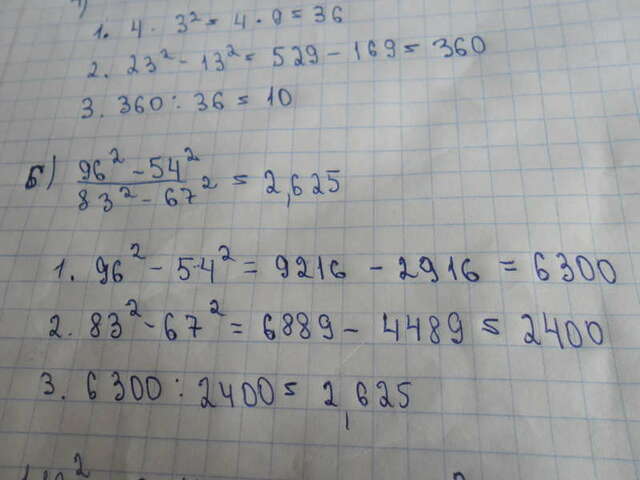 1. 4 · 3² = 4 · 9 = 36
2. 23² - 13² = 529 - 169 = 360
3. 360 : 36 = 10
б) 96² - 54² / 83² - 67² = 2,625
1. 96² - 54² = 9216 - 2916 = 6300
2. 83² - 67² = 6889 - 4489 = 2400
3. 6300 : 2400 = 2,625